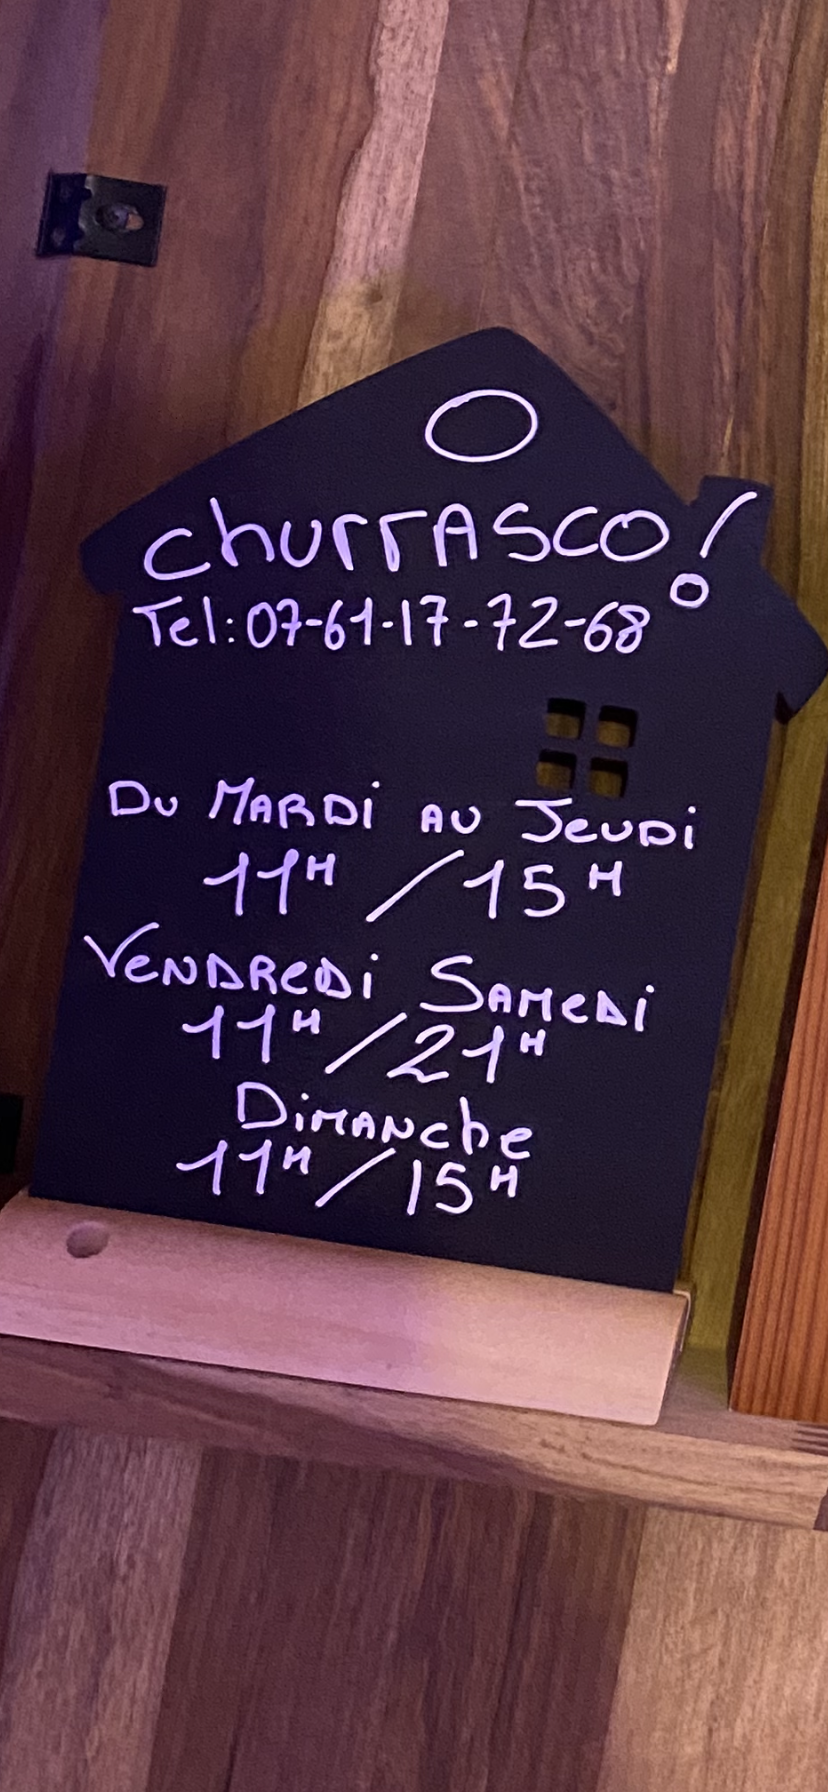 churrASCO!
Tel: 07-61-17-72-68
Du MARDi AU JeuDi
11H / 15H
VeNDReDi SAMeDi
11H / 21H
DiMANche
11H / 15H